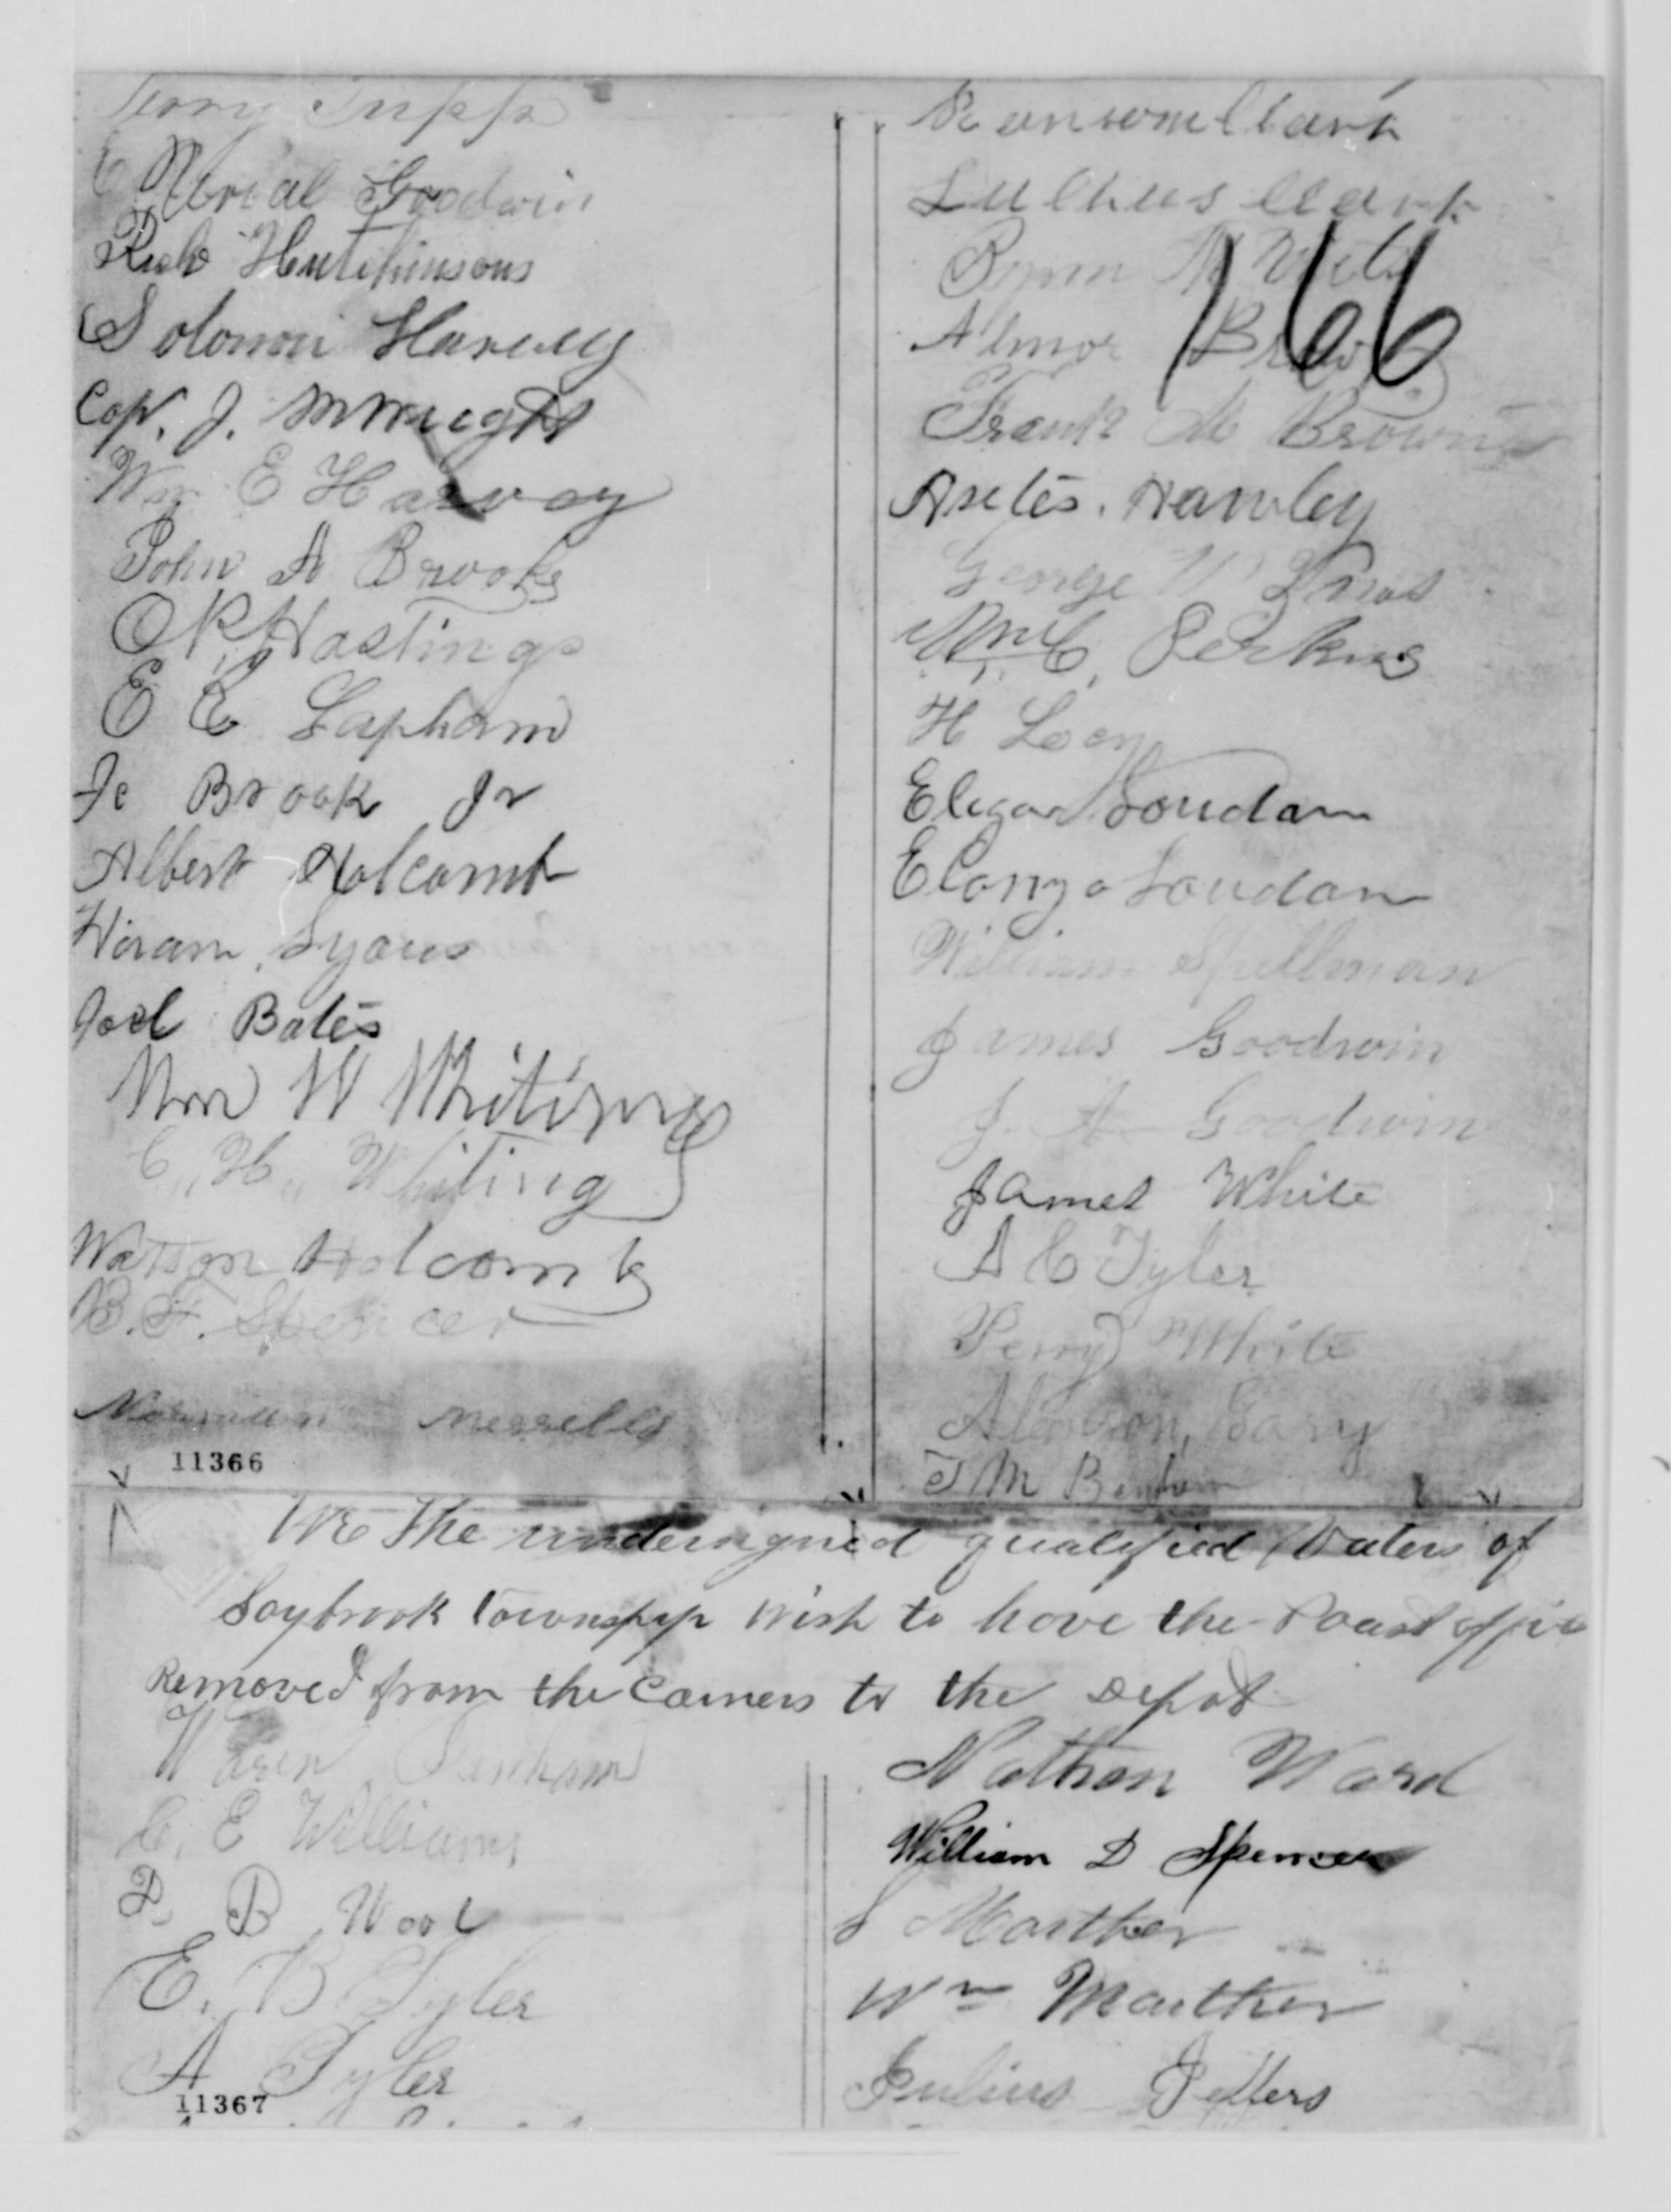 Perry Tripp
C Goodwin
Hutchinsons
Solomon Harvey
Cap. J. M Wright
Wm E Harvey
John A Brooks
O P Hastings
E C Lapham
Je Brook Jr
Albert Holcomb
Hiram Lyons
Joel Bates
Wm W Whiting
C. H. Whiting
Watson Holcomb
B. F. Spencer
Norman Merrells
11366
Ransom Clark
Clark
166
Almor Brown
Frank M Brown
Hawley
George W
Wm C. Perkins
H
Eligar Loudan
Elonzo Loudan
William Spellman
James Goodwin
J. A Goodwin
James White
A C Tyler
Perry White
Alonson Gary
T M Benham
We The undersigned qualified Voters of
Saybrook Township wish to have the Poast offic
Removed from the Corners to the Depot
Waren Benham
C. E Williams
D B Wool
E. B Tyler
A Tyler
11367
Nathan Ward
William D Spencer
S Marther
Wm Marther
Julius Peffers